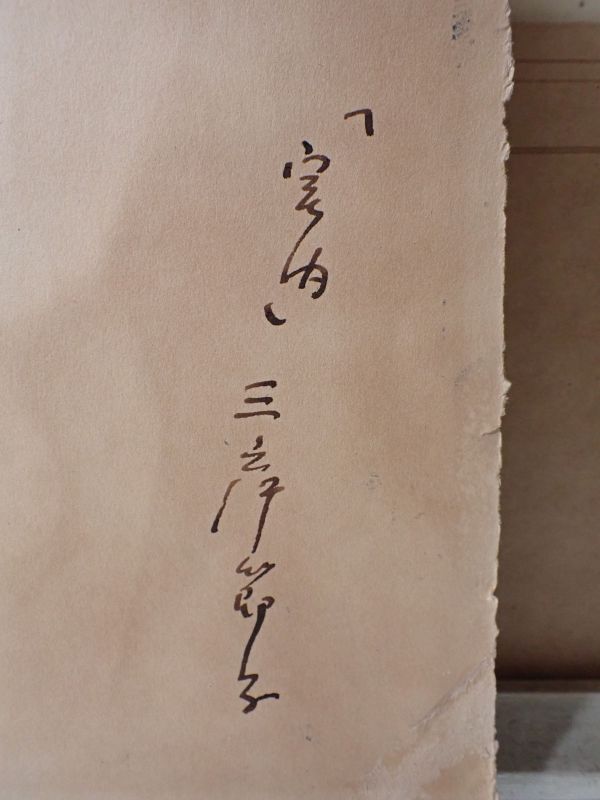 「室内」 三岸節子